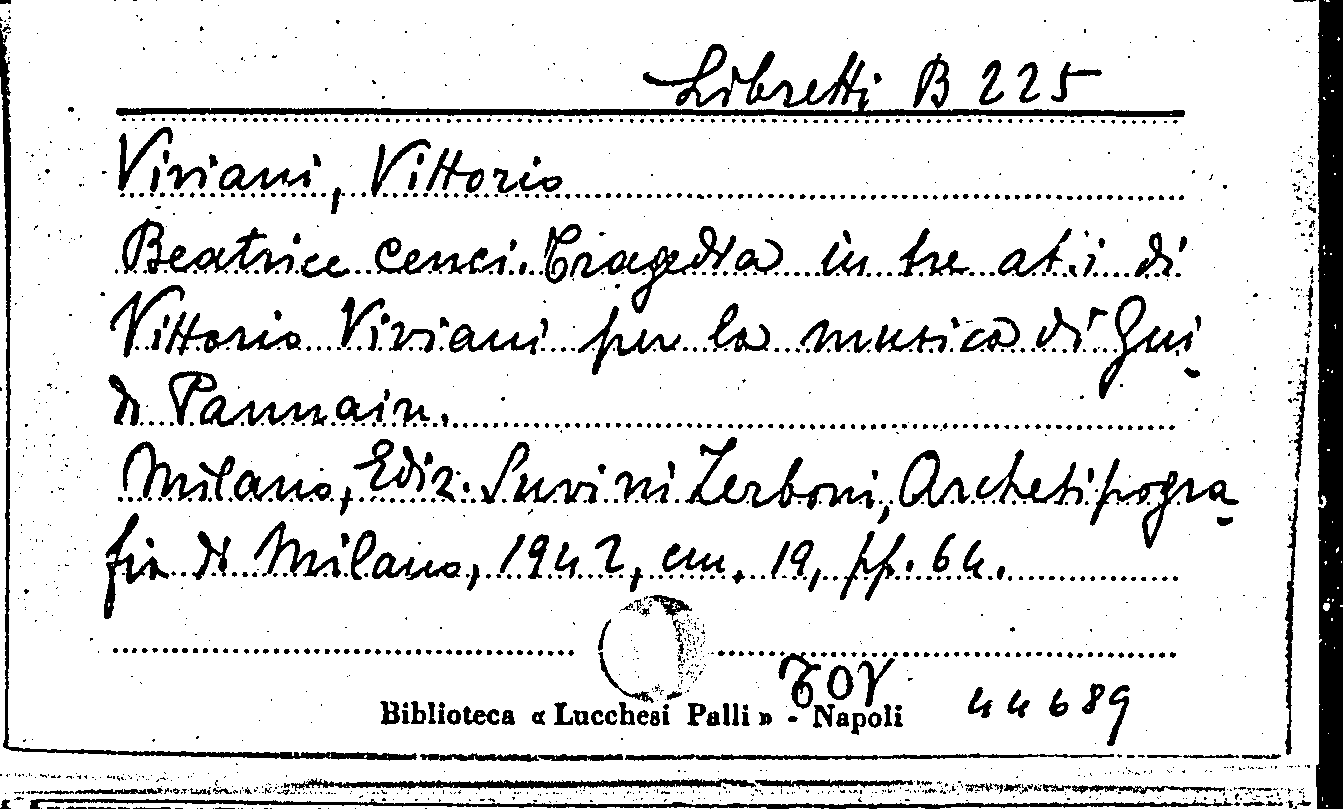 Libretti B 225
Viviani, Vittorio
Beatrice Cenci. Tragedia in tre atti di
Vittorio Viviani per la musica di Gui
do Pannain.
Milano, Ediz. Suvini Zerboni, Archetipogra
fia di Milano, 1942, cm. 19, pp. 64.
TOV
Biblioteca « Lucchesi Palli » - Napoli 44689